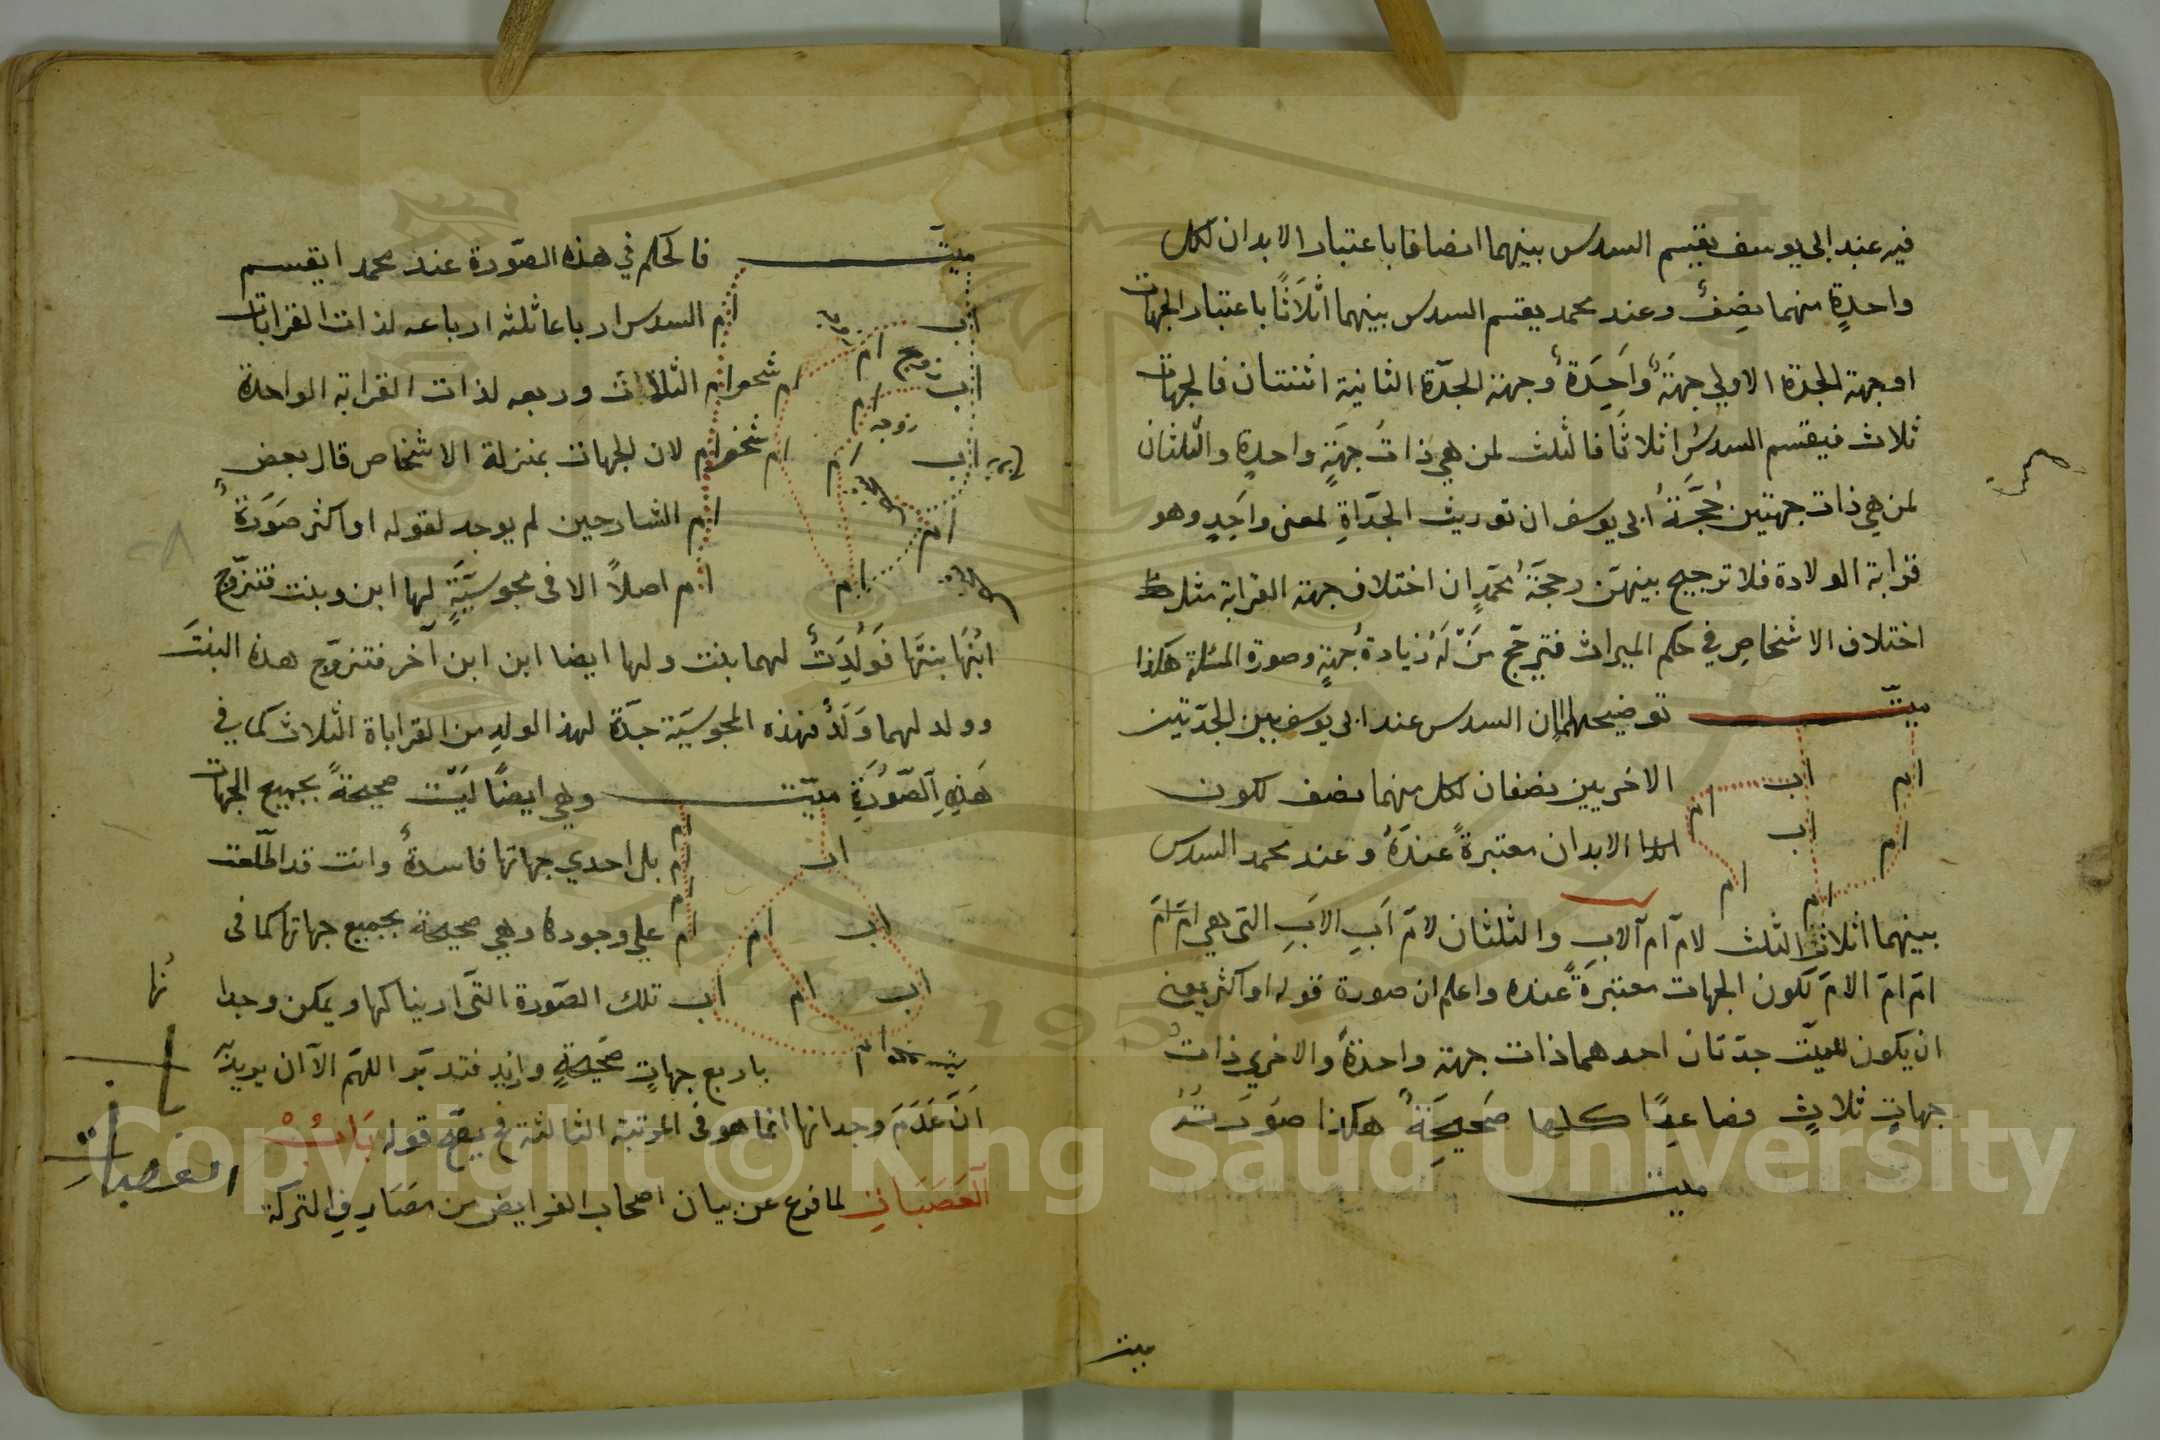 فيه عند ابى يوسف يقسم السدس بينهما انصافا باعتبار الابدان لكل
واحدةٍ منهما نصف وعند محمد يقسم السدس بينهما اثلاثا باعتبار الجهات
اوجهة الجدة الاولي جهةٌ واحدةٌ وجهة الجدّة الثانية اثنتان فالجهات
ثلاث فيقسم السدس اثلاثا فالثلث لمن هي ذات جهةٍ واحدةٍ والثلثان
لمن هي ذات جهتين حجة ابى يوسف ان توريث الجداة لمعنى واحدٍ وهو
قرابة الولادة فلا ترجيح بينهن وحجة محمد ان اختلاف جهة القرابة مثل
اختلاف الاشخاص في حكم الميراث فترجح من له زيادة جهةٍ وصورة المسئلة هكذا
ميت
توضيحها ان السدس عند ابى يوسف بين الجدتين
ام اب ام
الاخريين نصفان لكل منهما نصف لكون
ام اب ام
الابدان معتبرةً عنده وعند محمد السدس
ام
بينهما اثلاثا الثلث لام ام الاب والثلثان لام اب الاب التى هى ام ام
ام ام الام لكون الجهات معتبرةً عنده واعلم ان صورة قوله او اكثر يعنى
ان يكون للميت جدتان احدهما ذات جهة واحدة والاخرى ذات
جهاتٍ ثلاثٍ فصاعدًا كلها صحيحةٌ هكذا صورته
ميت
ميت
ميت
فالحكم في هذه الصورة عند محمد ان يقسم
اب ام
السدس ارباعا ثلثه ارباعه لذات القرابات
زوج ام
اب ام ام ام
الثلاث وربعه لذات القرابة الواحدة
زوجه
اب ام ام ام
لان الجهات بمنزلة الاشخاص قال بعض
ام ام
الشارحين لم يوجد لقوله او اكثر صورةٌ
ام ام
اصلاً الا فى مجوسيةٍ لها ابن وبنت فتزوج
ابنها بنتها فولدت لهما بنت ولها ايضا ابن ابن آخر فتزوج هذه البنت
وولد لهما ولدٌ فهذه المجوسية جدة لهذا الولد من القراباة الثلاث كما في
هذه الصورة ميت وهي ايضًا ليست صحيحةً بجميع الجهات
اب ام
بل احدي جهاتها فاسدةٌ وانت قد اطلعت
اب ام ام
علي وجودها وهي صحيحة بجميع جهاتها كما فى
اب ام اب
تلك الصورة التى اريناكها ويمكن وجدا
نها
ام
باربع جهاتٍ صحيحةٍ وازيد فتدبر اللهم الا ان يريد
ان عدم وجدانها انما هو فى المرتبة الثالثة فح يصح قوله بابُ
العصبات لما فرغ عن بيان اصحاب الفرايض من مصارف التركة
باب
العصبات